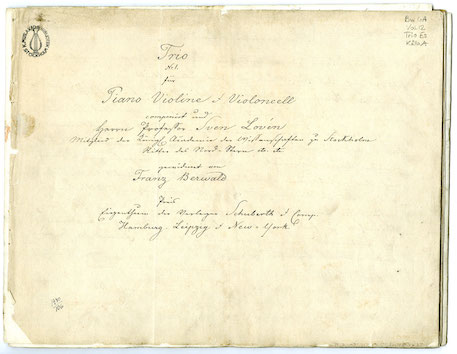 Trio
No 1.
für
Piano Violine & Violoncell
componirt und
Herrn Professor Sven Lovén
Mitglied der Königl. Academie der Wissenschaften zu Stockholm
Ritter des Nord-Stern etc etc
gewidmet von
Franz Berwald
Eigenthum der Verleger Schuberth & Comp.
Hamburg. Leipzig & New-York